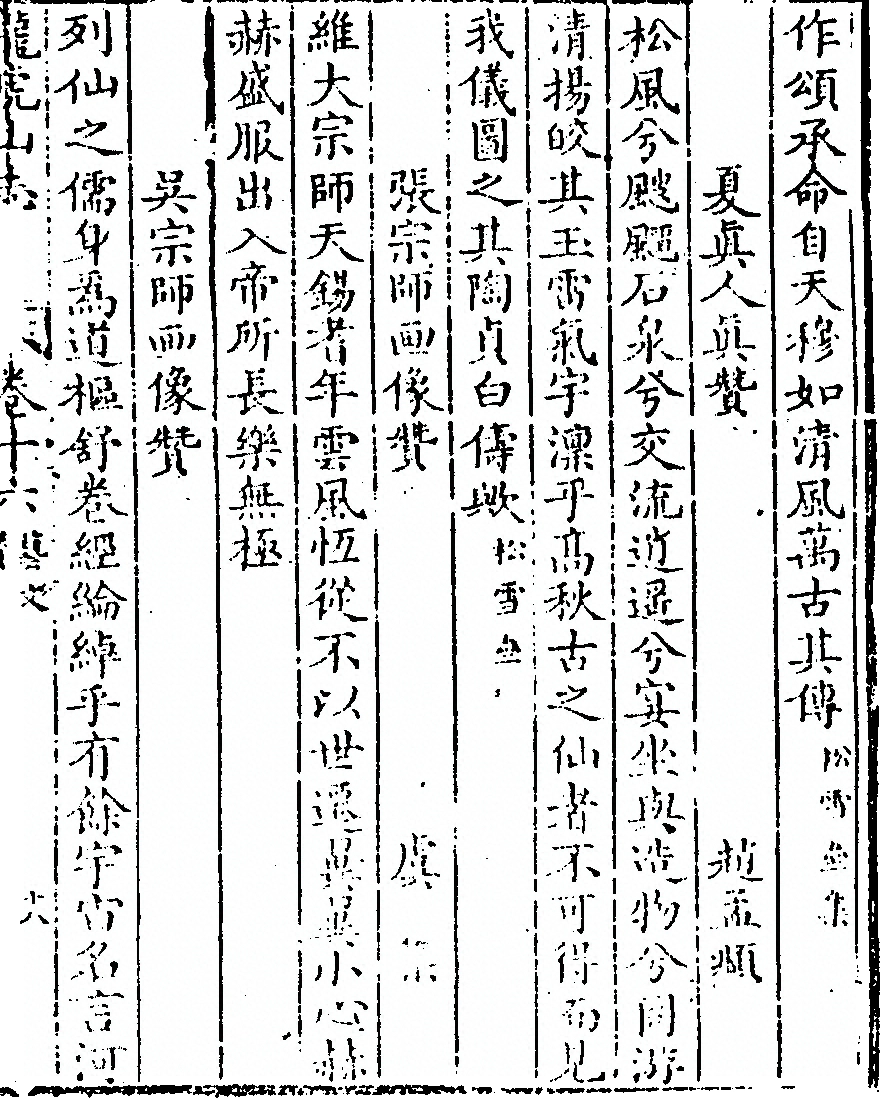 作頌承命自天穆如清風萬古其傳松雪並集
夏眞人眞贊　趙孟頫
松風兮颼飀石泉兮交流逍遥兮宴坐與造物兮同游
清揚皎其玉雪氣宇凛乎高秋古之仙者不可得而見
我儀圖之其陶貞白儔歟松雪並
張宗師画像贊　虞集
維大宗師天錫耆年雲風恆從不以世遷異異小心赫
赫盛服出入帝所長樂無極
吳宗師画像贊
列仙之儒身爲道樞舒卷經綸綽乎有餘宇宙名言河
龍虎山志　卷十六藝文　六